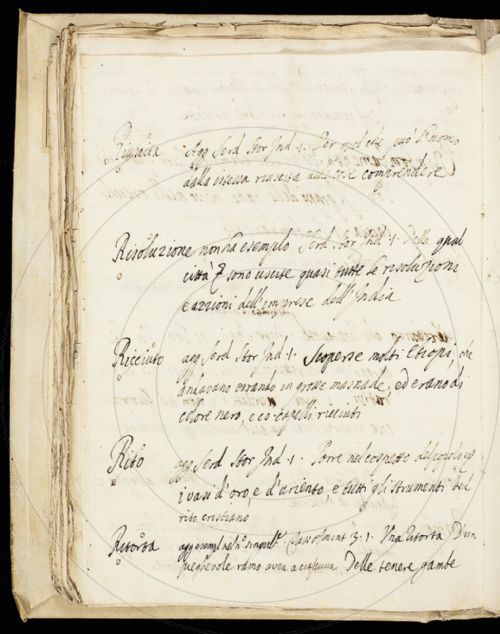 Riuscita agg Serd Stor Ind · 1 · Per quel che può l'uomo
dalla stessa riuscita comprendere
Risoluzione non ha esempio Serd Stor Ind · 1 · Dalla qual
città sono uscite quasi tutte le risoluzioni
e azzioni dell'imprese dell'India
Ricciuto agg Serd Stor Ind · 1 · Scoperse molti Etiopi, che
andavano errando in grosse masnade, ed erano di
colore nero, e co capelli ricciuti
Rito agg Serd Stor Ind · 1 · Porre nel cospetto del popolo
i vasi d'oro, e d'ariento, e tutti gli strumenti del
rito cristiano
Ritorta agg esempl nel singul Una ritorta D'un
pieghevole ramo avea a ciascuna Delle tenere gambe